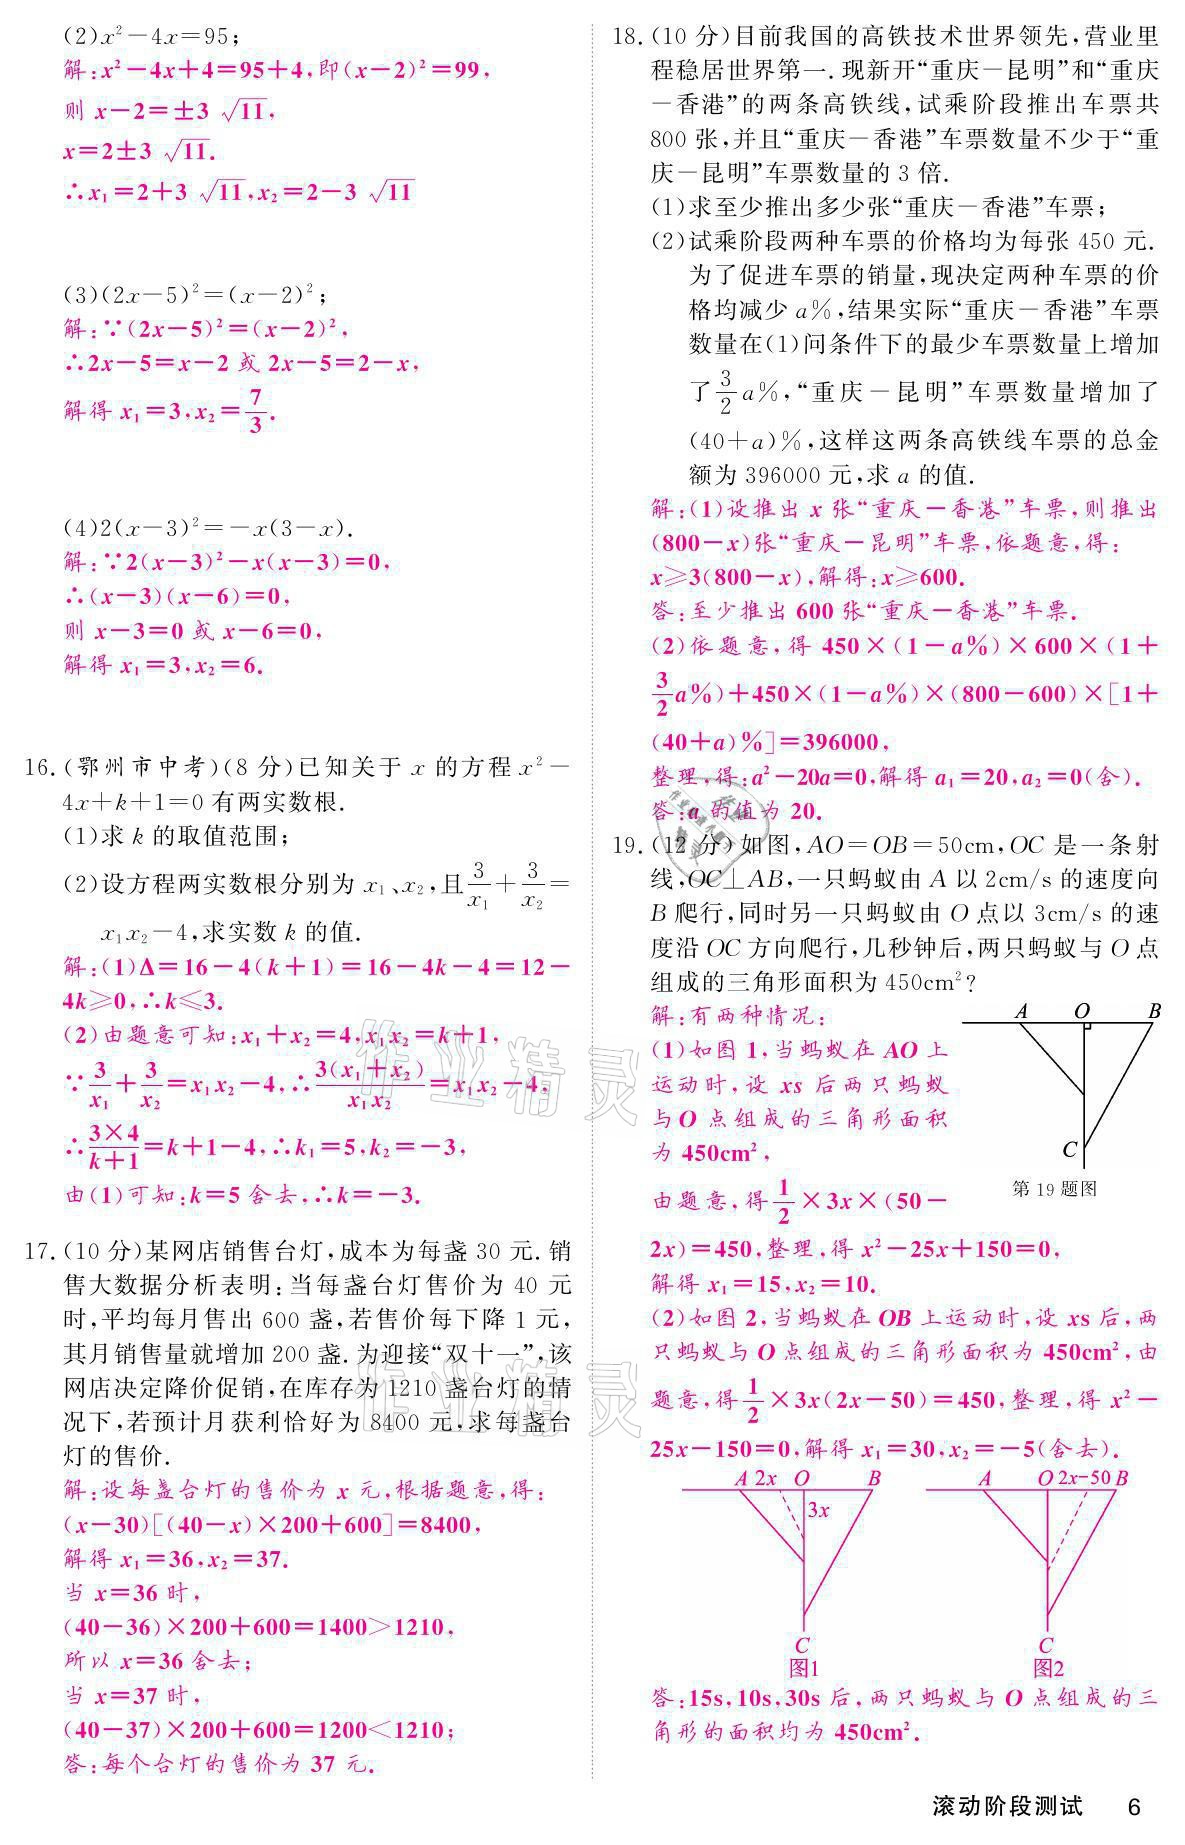 (2)x²－4x＝95;
解:x²－4x＋4＝95＋4,即(x－2)²＝99,
则 x－2＝±3 √11,
x＝2±3 √11.
∴x₁＝2＋3 √11,x₂＝2－3 √11
(3)(2x－5)²＝(x－2)²;
解:∵(2x－5)²＝(x－2)²,
∴2x－5＝x－2 或 2x－5＝2－x,
解得 x₁＝3,x₂＝7/3.
(4)2(x－3)²＝－x(3－x).
解:∵2(x－3)²－x(x－3)＝0,
∴(x－3)(x－6)＝0,
则 x－3＝0 或 x－6＝0,
解得 x₁＝3,x₂＝6.
16.(鄂州市中考)(8 分)已知关于 x 的方程 x²－
4x＋k＋1＝0 有两实数根.
(1)求 k 的取值范围;
(2)设方程两实数根分别为 x₁、x₂,且3/x₁＋3/x₂＝
x₁x₂－4,求实数 k 的值.
解:(1)Δ＝16－4(k＋1)＝16－4k－4＝12－
4k≥0,∴k≤3.
(2)由题意可知:x₁＋x₂＝4,x₁x₂＝k＋1,
∵3/x₁＋3/x₂＝x₁x₂－4,∴3(x₁＋x₂)/x₁x₂＝x₁x₂－4,
∴3×4/k＋1＝k＋1－4,∴k₁＝5,k₂＝－3,
由(1)可知:k＝5 舍去,∴k＝－3.
17.(10 分)某网店销售台灯,成本为每盏 30 元.销
售大数据分析表明:当每盏台灯售价为 40 元
时,平均每月售出 600 盏,若售价每下降 1 元,
其月销售量就增加 200 盏.为迎接“双十一”,该
网店决定降价促销,在库存为 1210 盏台灯的情
况下,若预计月获利恰好为 8400 元,求每盏台
灯的售价.
解:设每盏台灯的售价为 x 元,根据题意,得:
(x－30)[(40－x)×200＋600]＝8400,
解得 x₁＝36,x₂＝37.
当 x＝36 时,
(40－36)×200＋600＝1400＞1210,
所以 x＝36 舍去;
当 x＝37 时,
(40－37)×200＋600＝1200＜1210;
答:每个台灯的售价为 37 元.
18.(10 分)目前我国的高铁技术世界领先,营业里
程稳居世界第一.现新开“重庆－昆明”和“重庆
－香港”的两条高铁线,试乘阶段推出车票共
800 张,并且“重庆－香港”车票数量不少于“重
庆－昆明”车票数量的 3 倍.
(1)求至少推出多少张“重庆－香港”车票;
(2)试乘阶段两种车票的价格均为每张 450 元.
为了促进车票的销量,现决定两种车票的价
格均减少 a%,结果实际“重庆－香港”车票
数量在(1)问条件下的最少车票数量上增加
了3/2a%,“重庆－昆明”车票数量增加了
(40＋a)%,这样这两条高铁线车票的总金
额为 396000 元,求 a 的值.
解:(1)设推出 x 张“重庆－香港”车票,则推出
(800－x)张“重庆－昆明”车票,依题意,得:
x≥3(800－x),解得:x≥600.
答:至少推出 600 张“重庆－香港”车票.
(2)依题意,得 450×(1－a%)×600×(1＋
3/2a%)＋450×(1－a%)×(800－600)×[1＋
(40＋a)%]＝396000,
整理,得:a²－20a＝0,解得 a₁＝20,a₂＝0(舍).
答:a 的值为 20.
19.(12 分)如图,AO＝OB＝50cm,OC 是一条射
线,OC⊥AB,一只蚂蚁由 A 以 2cm/s 的速度向
B 爬行,同时另一只蚂蚁由 O 点以 3cm/s 的速
度沿 OC 方向爬行,几秒钟后,两只蚂蚁与 O 点
组成的三角形面积为 450cm²?
解:有两种情况:
(1)如图 1,当蚂蚁在 AO 上
运动时,设 xs 后两只蚂蚁
与O 点组成的三角形面积
为 450cm²,
A O B
C
第 19 题图
由题意,得1/2×3x×(50－
2x)＝450,整理,得 x²－25x＋150＝0,
解得 x₁＝15,x₂＝10.
(2)如图 2,当蚂蚁在 OB 上运动时,设 xs 后,两
只蚂蚁与 O 点组成的三角形面积为 450cm²,由
题意,得1/2×3x(2x－50)＝450,整理,得 x²－
25x－150＝0,解得 x₁＝30,x₂＝－5(舍去).
A 2x O B
3x
C
图1
A O 2x-50 B
C
图2
答:15s,10s,30s 后,两只蚂蚁与 O 点组成的三
角形的面积均为 450cm².
作业精灵
作业精灵
滚动阶段测试 6